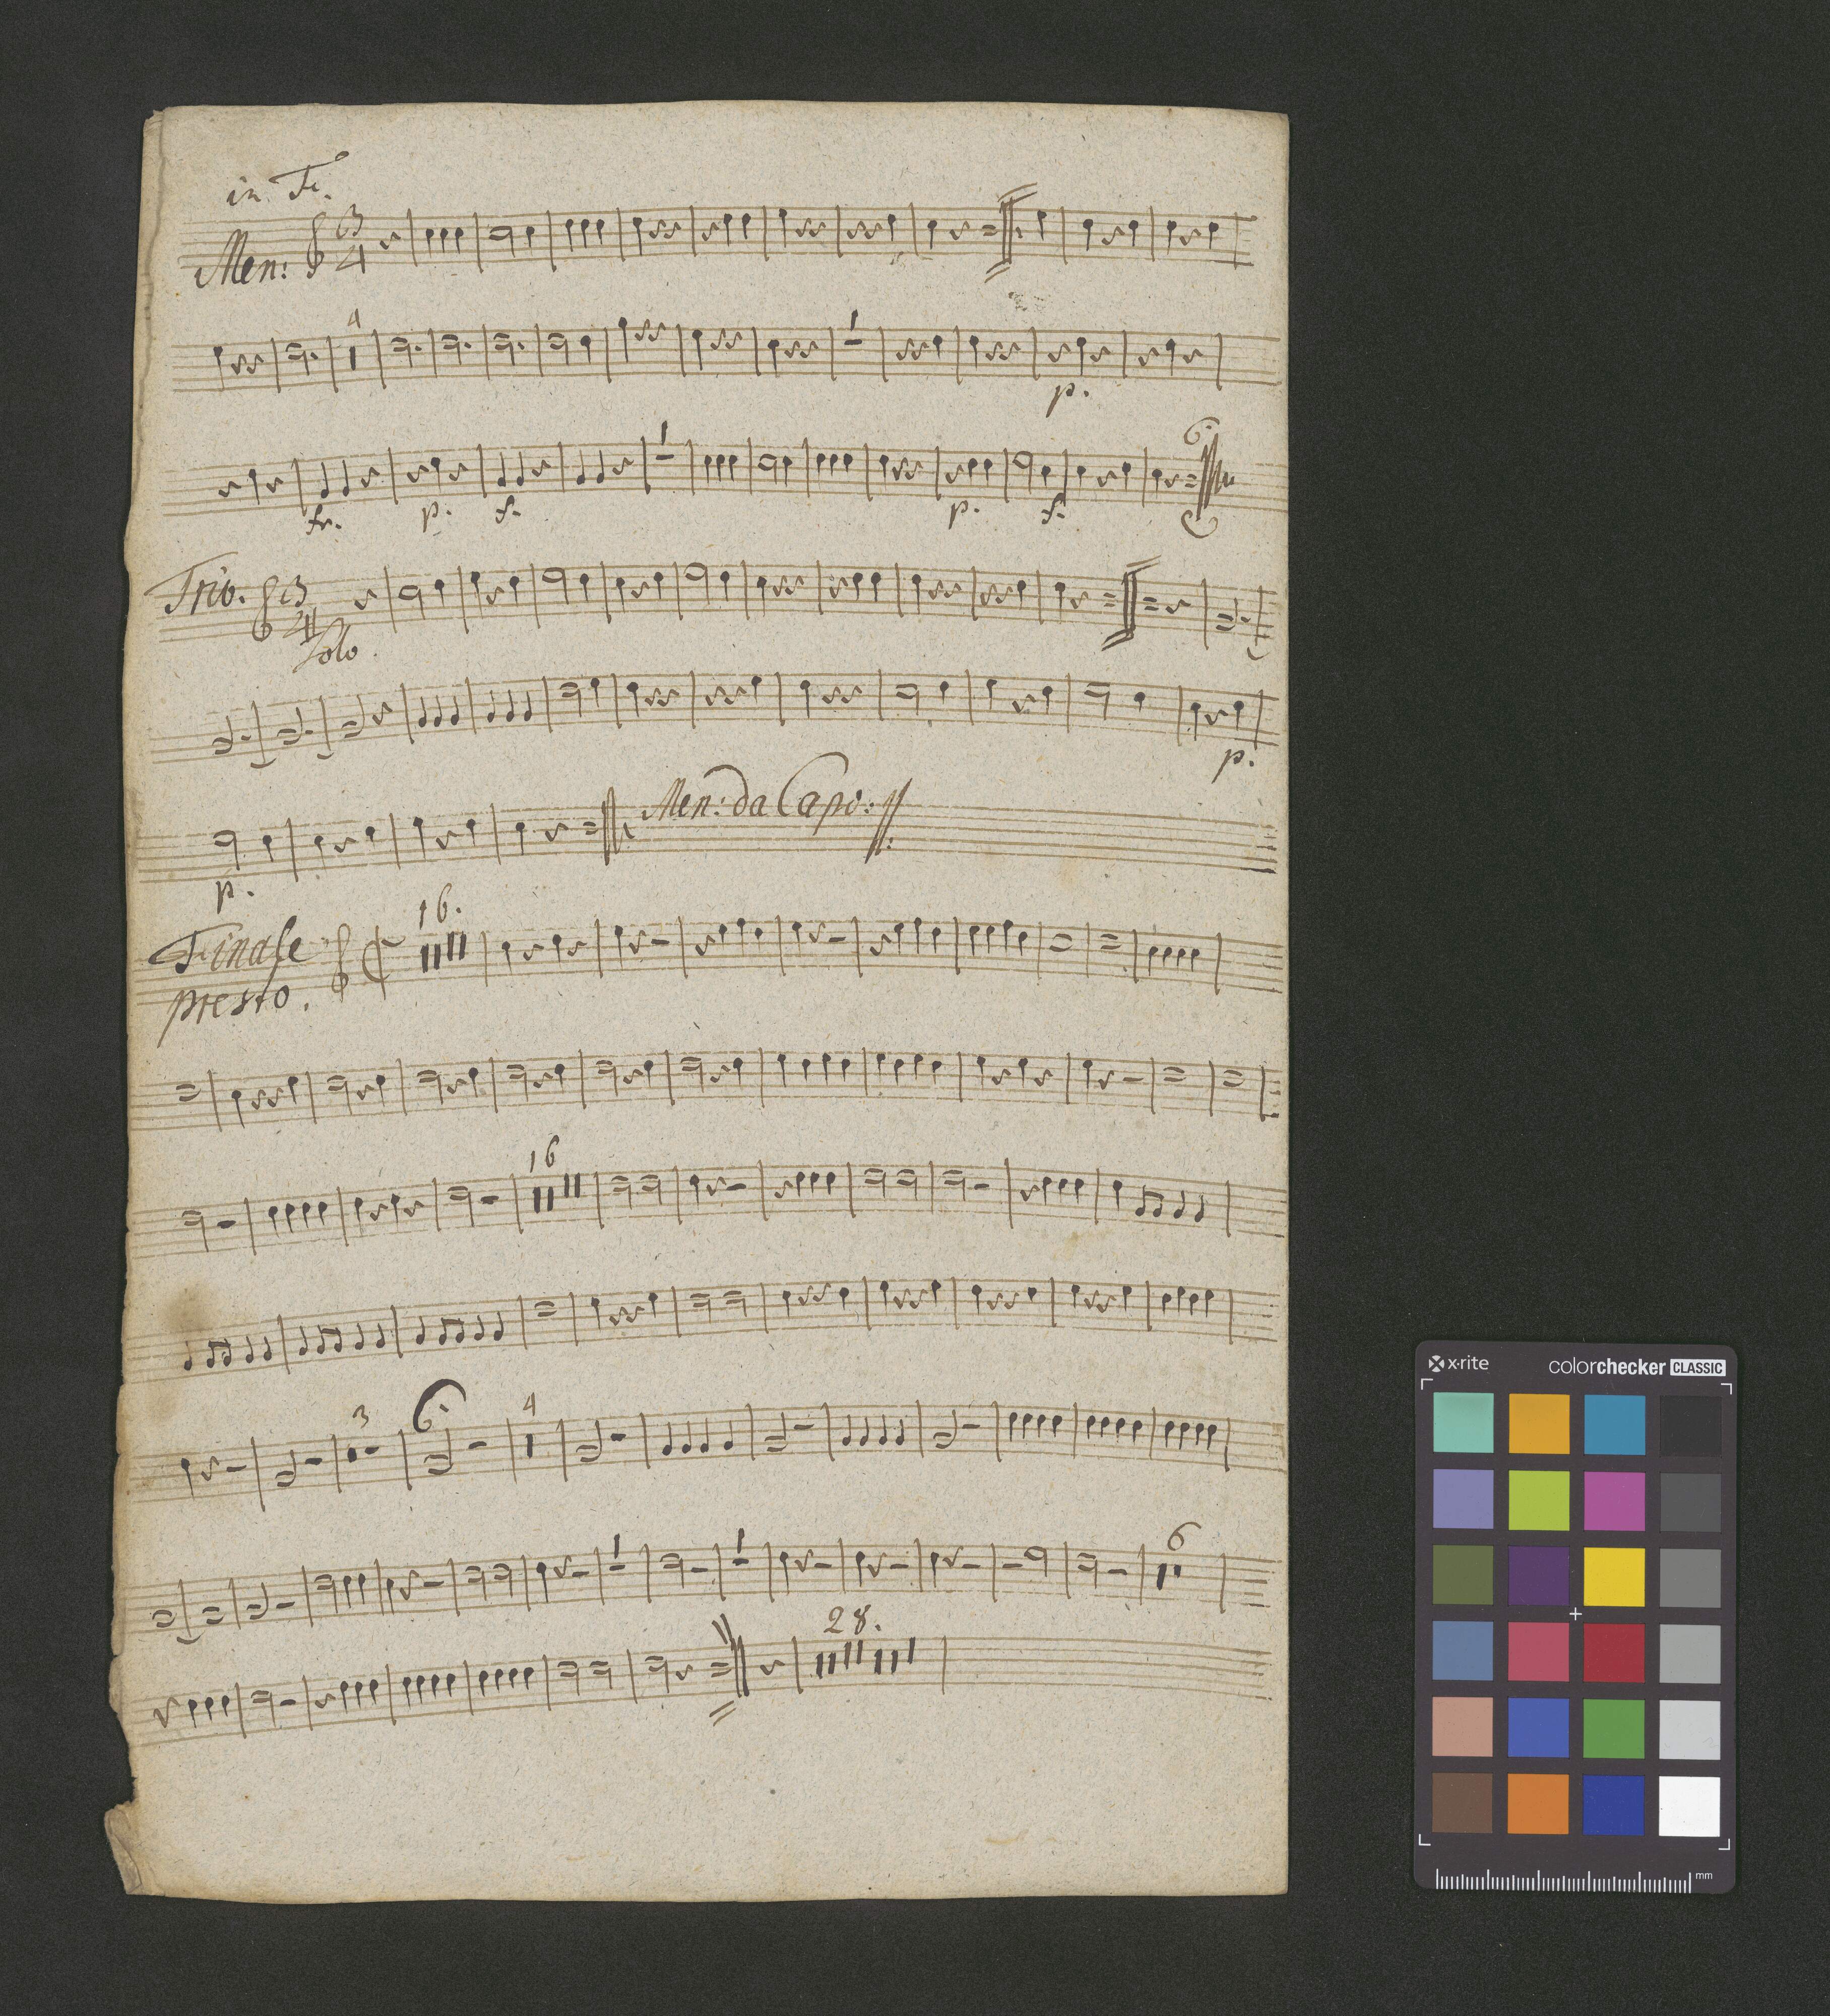 in F.
Men: 3/4
4
1
p.
1
6.
fr. p. f. p. f.
Trio. 3/4
Solo.
p.
Men: da Capo:
p.
16.
Finale
presto.
16
3 4
1 1 6
28.
x-rite colorchecker CLASSIC
mm